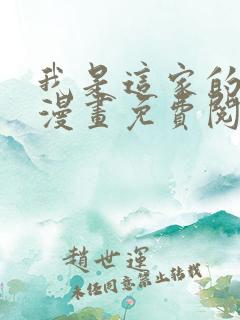 我是這家的
漫畫免費閱
趙世運
未经同意禁止转载